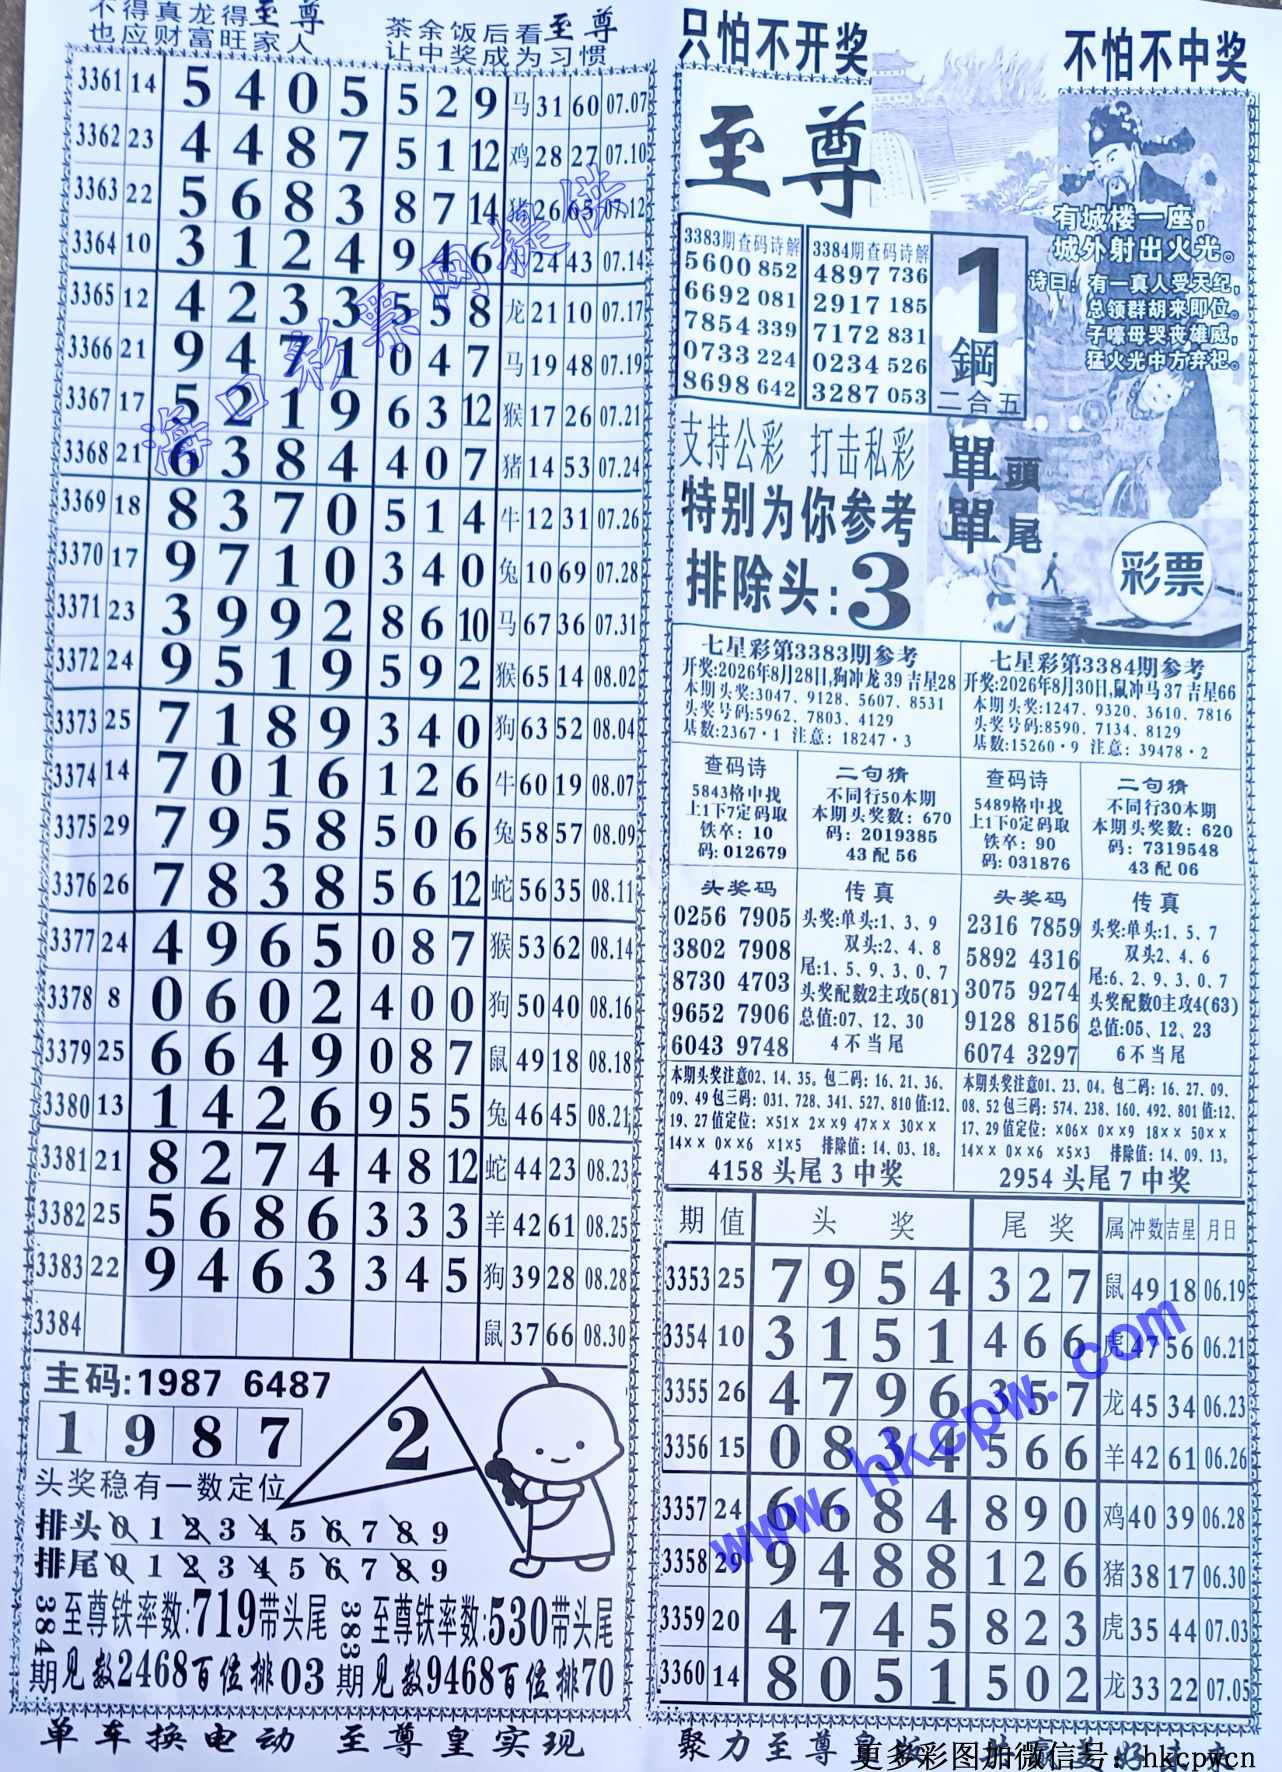 不得真龙得至尊
也应财富旺家人
茶余饭后看至尊
让中奖成为习惯
3361 14 5 4 0 5 5 2 9 马 31 60 07.07
3362 23 4 4 8 7 5 1 12 鸡 28 27 07.10
3363 22 5 6 8 3 8 7 14 猪 26 65 07.12
3364 10 3 1 2 4 9 4 6 24 43 07.14
3365 12 4 2 3 3 5 5 8 龙 21 10 07.17
3366 21 9 4 7 1 0 4 7 马 19 48 07.19
3367 17 5 2 1 9 6 3 12 猴 17 26 07.21
3368 21 6 3 8 4 4 0 7 猪 14 53 07.24
3369 18 8 3 7 0 5 1 4 牛 12 31 07.26
3370 17 9 7 1 0 3 4 0 兔 10 69 07.28
3371 23 3 9 9 2 8 6 10 马 67 36 07.31
3372 24 9 5 1 9 5 9 2 猴 65 14 08.02
3373 25 7 1 8 9 3 4 0 狗 63 52 08.04
3374 14 7 0 1 6 1 2 6 牛 60 19 08.07
3375 29 7 9 5 8 5 0 6 兔 58 57 08.09
3376 26 7 8 3 8 5 6 12 蛇 56 35 08.11
3377 24 4 9 6 5 0 8 7 猴 53 62 08.14
3378 8 0 6 0 2 4 0 0 狗 50 40 08.16
3379 25 6 6 4 9 0 8 7 鼠 49 18 08.18
3380 13 1 4 2 6 9 5 5 兔 46 45 08.21
3381 21 8 2 7 4 4 8 12 蛇 44 23 08.23
3382 25 5 6 8 6 3 3 3 羊 42 61 08.25
3383 22 9 4 6 3 3 4 5 狗 39 28 08.28
3384 鼠 37 66 08.30
海口彩票网提供
主码:1987 6487
1 9 8 7
2
头奖稳有一数定位
排头 0 1 2 3 4 5 6 7 8 9
排尾 0 1 2 3 4 5 6 7 8 9
384期
至尊铁率数:719带头尾
见数2468百位排03
383期
至尊铁率数:530带头尾
见数9468百位排70
单车换电动 至尊皇实现
只怕不开奖
不怕不中奖
至尊
有城楼一座,
城外射出火光。
诗曰:有一真人受天纪,
总领群胡来即位。
子嚎母哭丧雄威,
猛火光中方弃祀。
3383期查码诗解
5600 852
6692 081
7854 339
0733 224
8698 642
3384期查码诗解
4897 736
2917 185
7172 831
0234 526
3287 053
1
鋼
二合五
支持公彩 打击私彩
特别为你参考
排除头:3
單頭
單尾
彩票
七星彩第3383期参考
开奖:2026年8月28日,狗冲龙 39 吉星28
本期头奖:3047、9128、5607、8531
头奖号码:5962、7803、4129
基数:2367·1 注意:18247·3
七星彩第3384期参考
开奖:2026年8月30日,鼠冲马 37 吉星66
本期头奖:1247、9320、3610、7816
头奖号码:8590、7134、8129
基数:15260·9 注意:39478·2
查码诗
5843格中找
上1下7定码取
铁卒:10
码:012679
二句猜
不同行50本期
本期头奖数:670
码:2019385
43 配 56
查码诗
5489格中找
上1下0定码取
铁卒:90
码:031876
二句猜
不同行30本期
本期头奖数:620
码:7319548
43 配 06
头奖码
0256 7905
3802 7908
8730 4703
9652 7906
6043 9748
传真
头奖:单头:1、3、9
双头:2、4、8
尾:1、5、9、3、0、7
头奖配数2主攻5(81)
总值:07、12、30
4 不当尾
头奖码
2316 7859
5892 4316
3075 9274
9128 8156
6074 3297
传真
头奖:单头:1、5、7
双头2、4、6
尾:6、2、9、3、0、7
头奖配数0主攻4(63)
总值:05、12、23
6 不当尾
本期头奖注意02、14、35。包二码:16、21、36、
09、49包三码:031、728、341、527、810 值:12、
19、27 值定位: ×51× 2××9 47×× 30××
14×× 0××6 ×1×5 排除值:14、03、18。
4158 头尾 3 中奖
本期头奖注意01、23、04。包二码:16、27、09、
08、52包三码:574、238、160、492、801 值:12、
17、29 值定位: ×06× 0××9 18×× 50××
14×× 0××6 ×5×3 排除值:14、09、13。
2954 头尾 7 中奖
期 值 头奖 尾奖 属 冲数 吉星 月日
3353 25 7 9 5 4 3 2 7 鼠 49 18 06.19
3354 10 3 1 5 1 4 6 6 虎 47 56 06.21
3355 26 4 7 9 6 3 5 7 龙 45 34 06.23
3356 15 0 8 3 4 5 6 6 羊 42 61 06.26
3357 24 6 6 8 4 8 9 0 鸡 40 39 06.28
3358 29 9 4 8 8 1 2 6 猪 38 17 06.30
3359 20 4 7 4 5 8 2 3 虎 35 44 07.03
3360 14 8 0 5 1 5 0 2 龙 33 22 07.05
www.hkcpw.com
聚力至尊皇
更多彩图加微信号: hkcpwcn